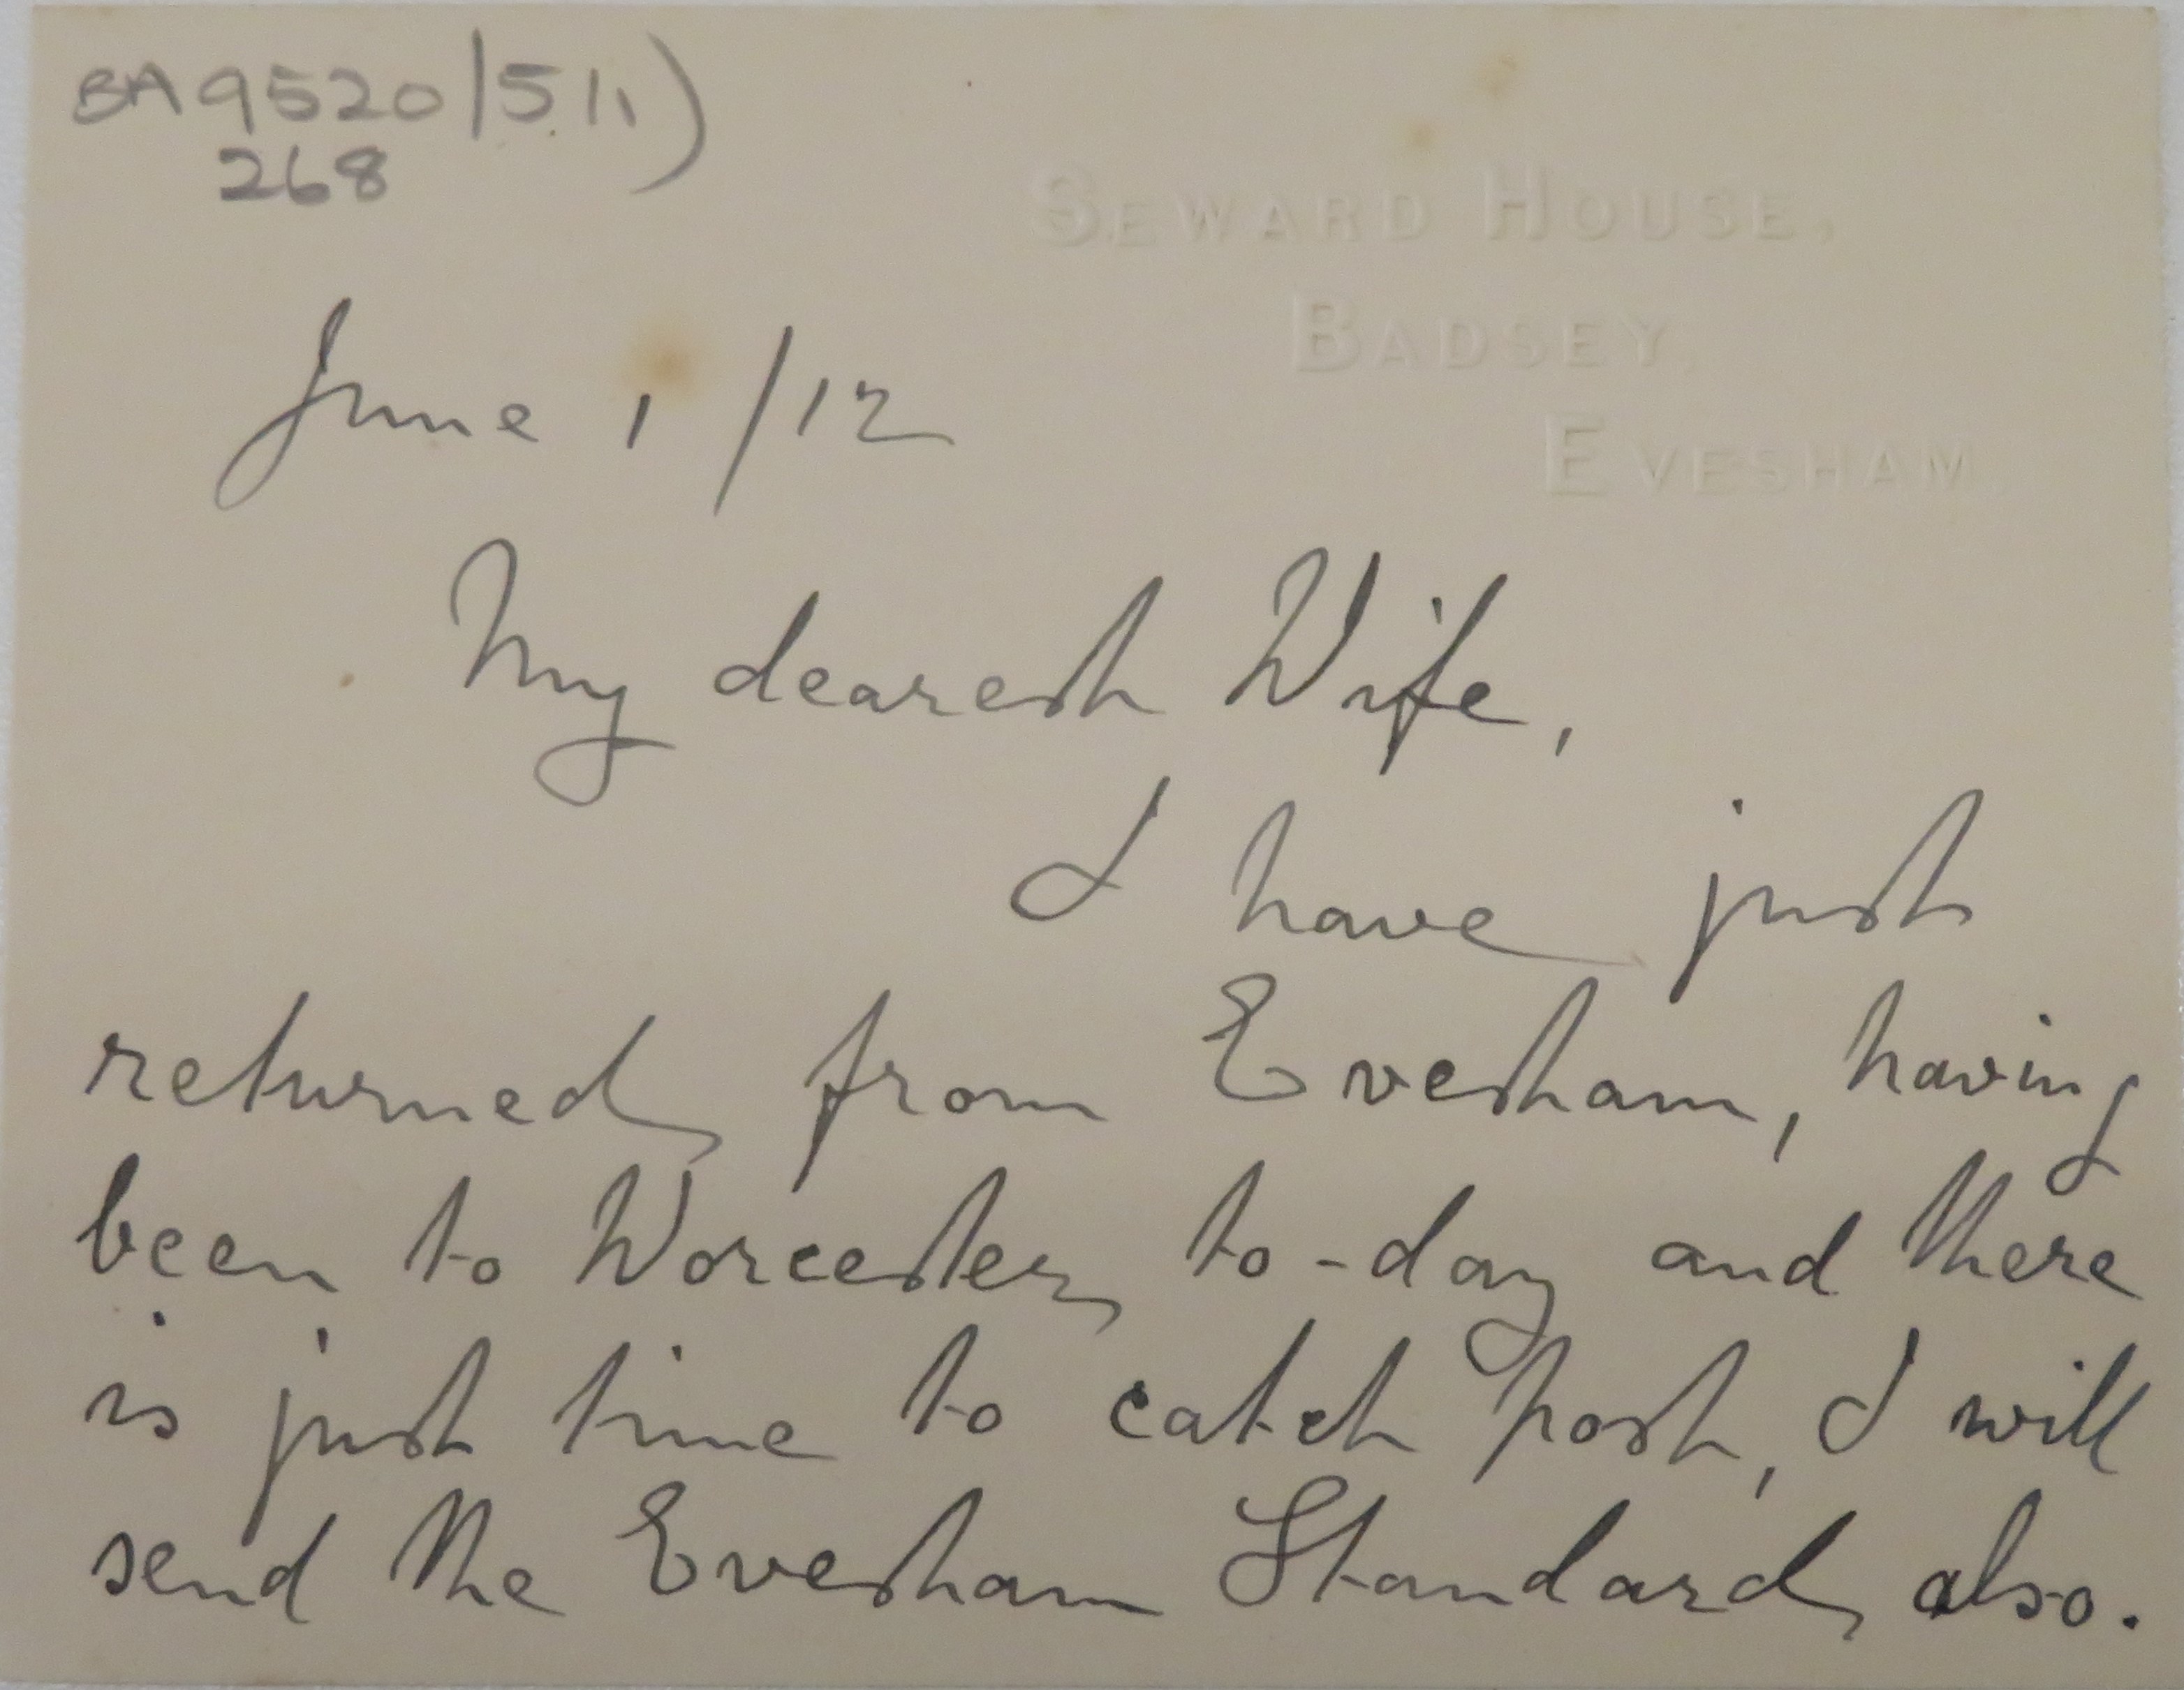 BA 9520/5(1)
268
SEWARD HOUSE,
BADSEY,
EVESHAM
June 1/12
My dearest Wife,
I have just
returned from Evesham, having
been to Worcester to-day and there
is just time to catch post, I will
send the Evesham Standard also.